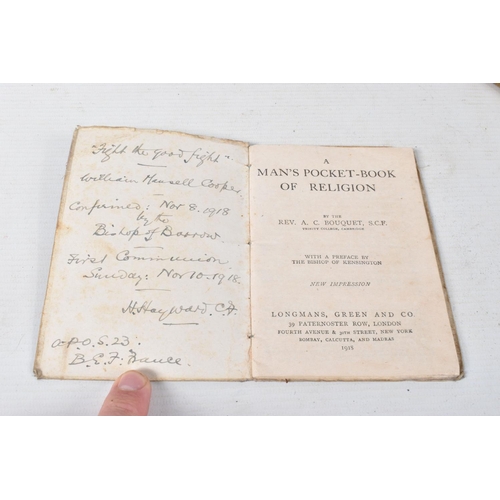 "Fight the good fight".
William Mansell Cooper.
Confirmed: Nov 8. 1918
by the
Bishop of Barrow.
First Communion
Sunday: Nov 10. 1918.
H. Hayward. C.F.
A.P.O. S. 23.
B.E.F. France.
A
MAN'S POCKET-BOOK
OF RELIGION
BY THE
REV. A. C. BOUQUET, S.C.F.
TRINITY COLLEGE, CAMBRIDGE
WITH A PREFACE BY
THE BISHOP OF KENSINGTON
NEW IMPRESSION
LONGMANS, GREEN AND CO
39 PATERNOSTER ROW, LONDON
FOURTH AVENUE & 30TH STREET, NEW YORK
BOMBAY, CALCUTTA, AND MADRAS
1918